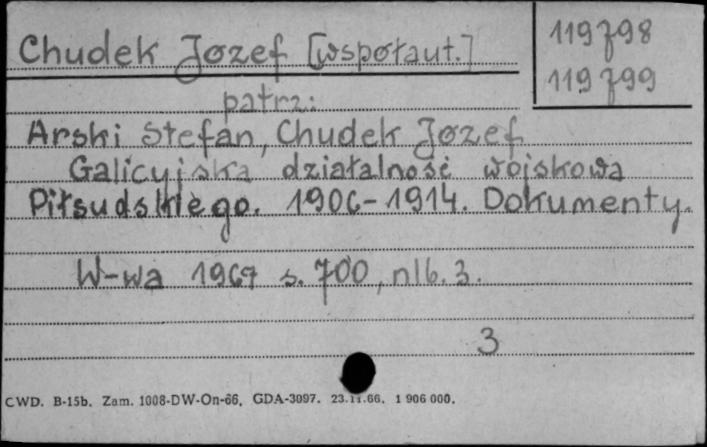 Chudek Józef [współaut.]
119798
119799
patrz:
Arski Stefan, Chudek Józef
Galicyjska działalność wojskowa
Piłsudskiego. 1906-1914. Dokumenty.
W-wa 1967 s. 700, nlb. 3.
3
CWD. B-15b. Zam. 1008-DW-On-66. GDA-3097. 23.11.66. 1 906 000.